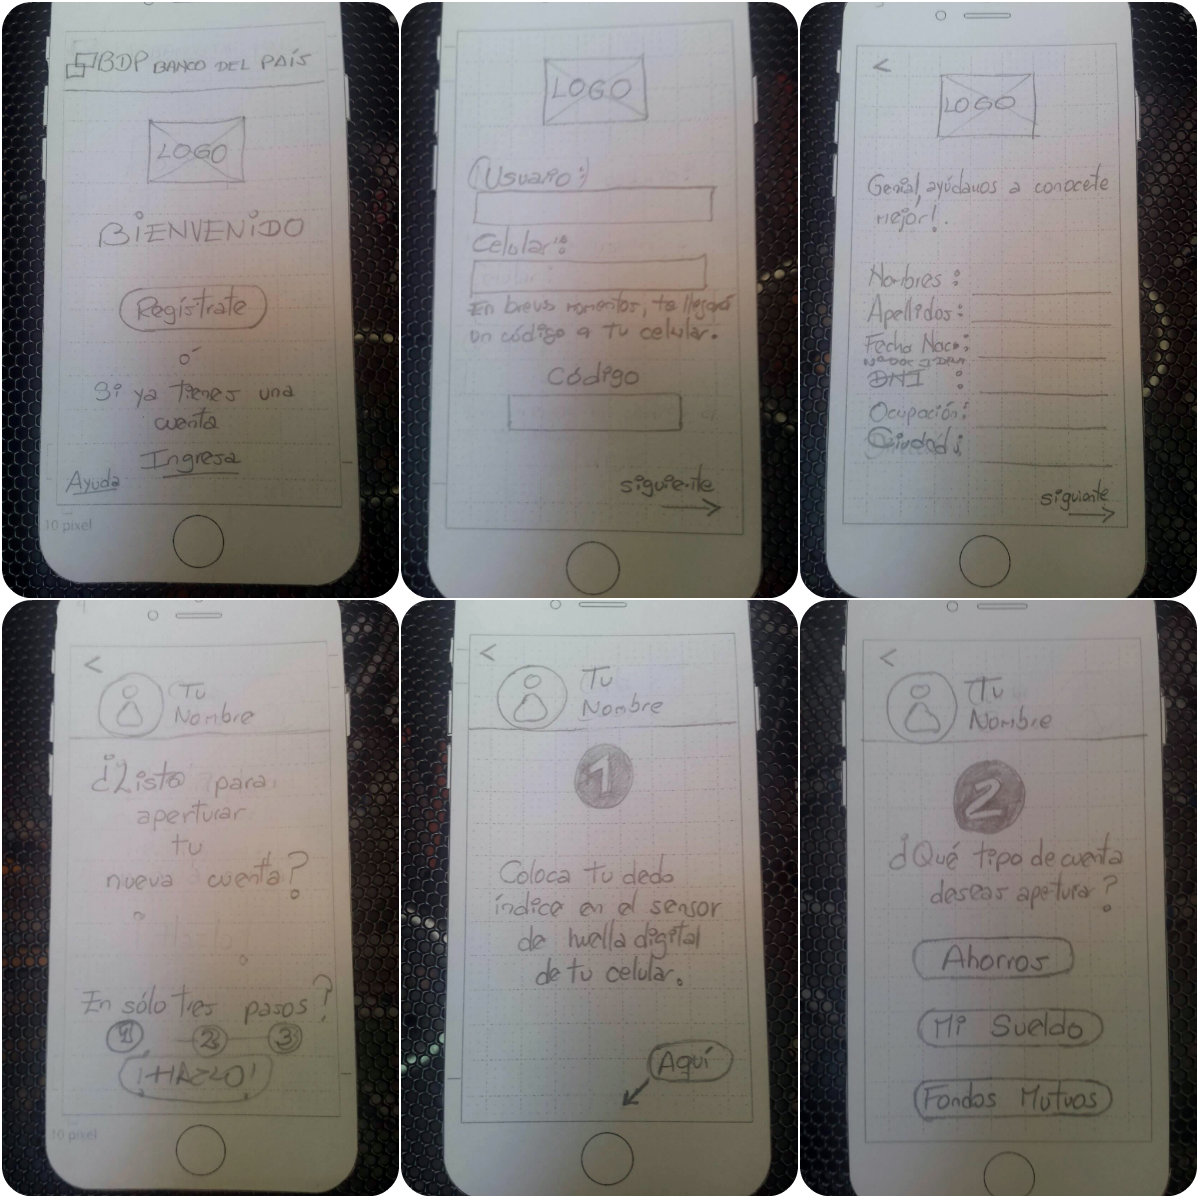 BDP BANCO DEL PAÍS
LOGO
BIENVENIDO
Regístrate
ó
Si ya tienes una
cuenta
Ingresa
Ayuda
10 pixel
LOGO
Usuario:
Celular:
En breves momentos, te llegará
un código a tu celular.
Código
siguiente
<
LOGO
Genial, ayúdanos a conocete
mejor!.
Nombres :
Apellidos:
Fecha Nac.:
DNI :
Ocupación:
Ciudad:
siguiente
<
Tu
Nombre
¿Listo para
aperturar
tu
nueva cuenta?
En sólo tres pasos?
1 2 3
¡HAZLO!
10 pixel
<
Tu
Nombre
1
Coloca tu dedo
índice en el sensor
de huella digital
de tu celular.
Aquí
<
Tu
Nombre
2
¿Qué tipo de cuenta
deseas aperturar?
Ahorros
Mi Sueldo
Fondos Mutuos